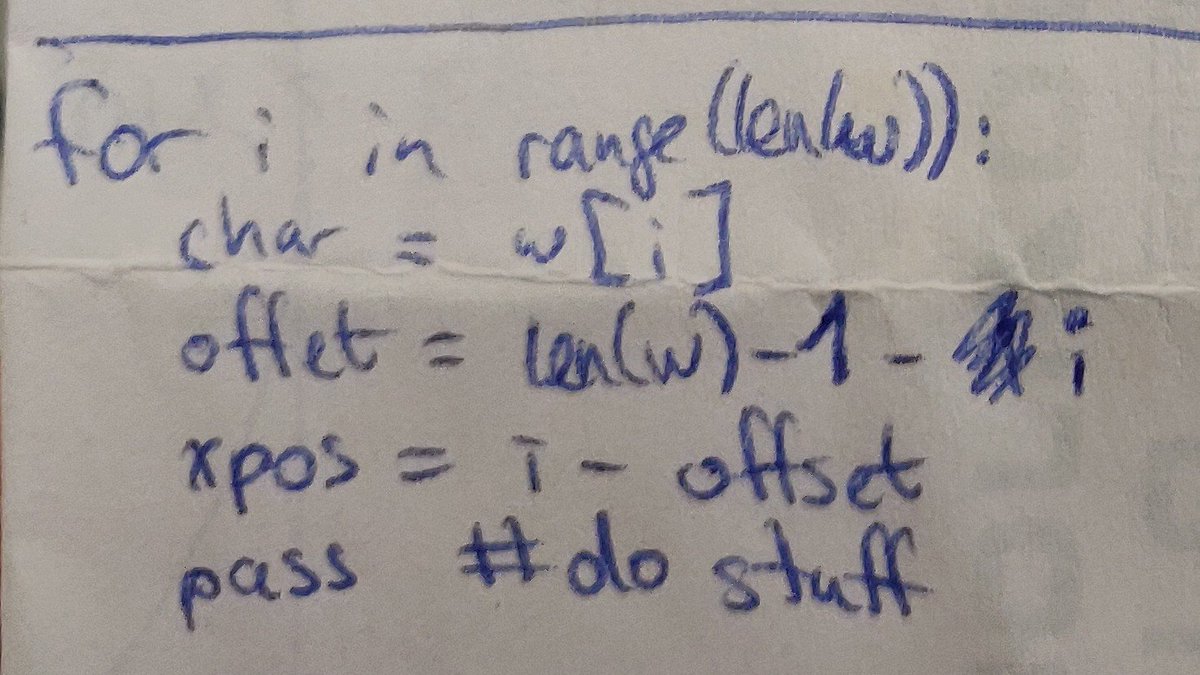 for i in range(len(w)):
char = w[i]
offet = len(w)-1 - i
xpos = i - offset
pass #do stuff